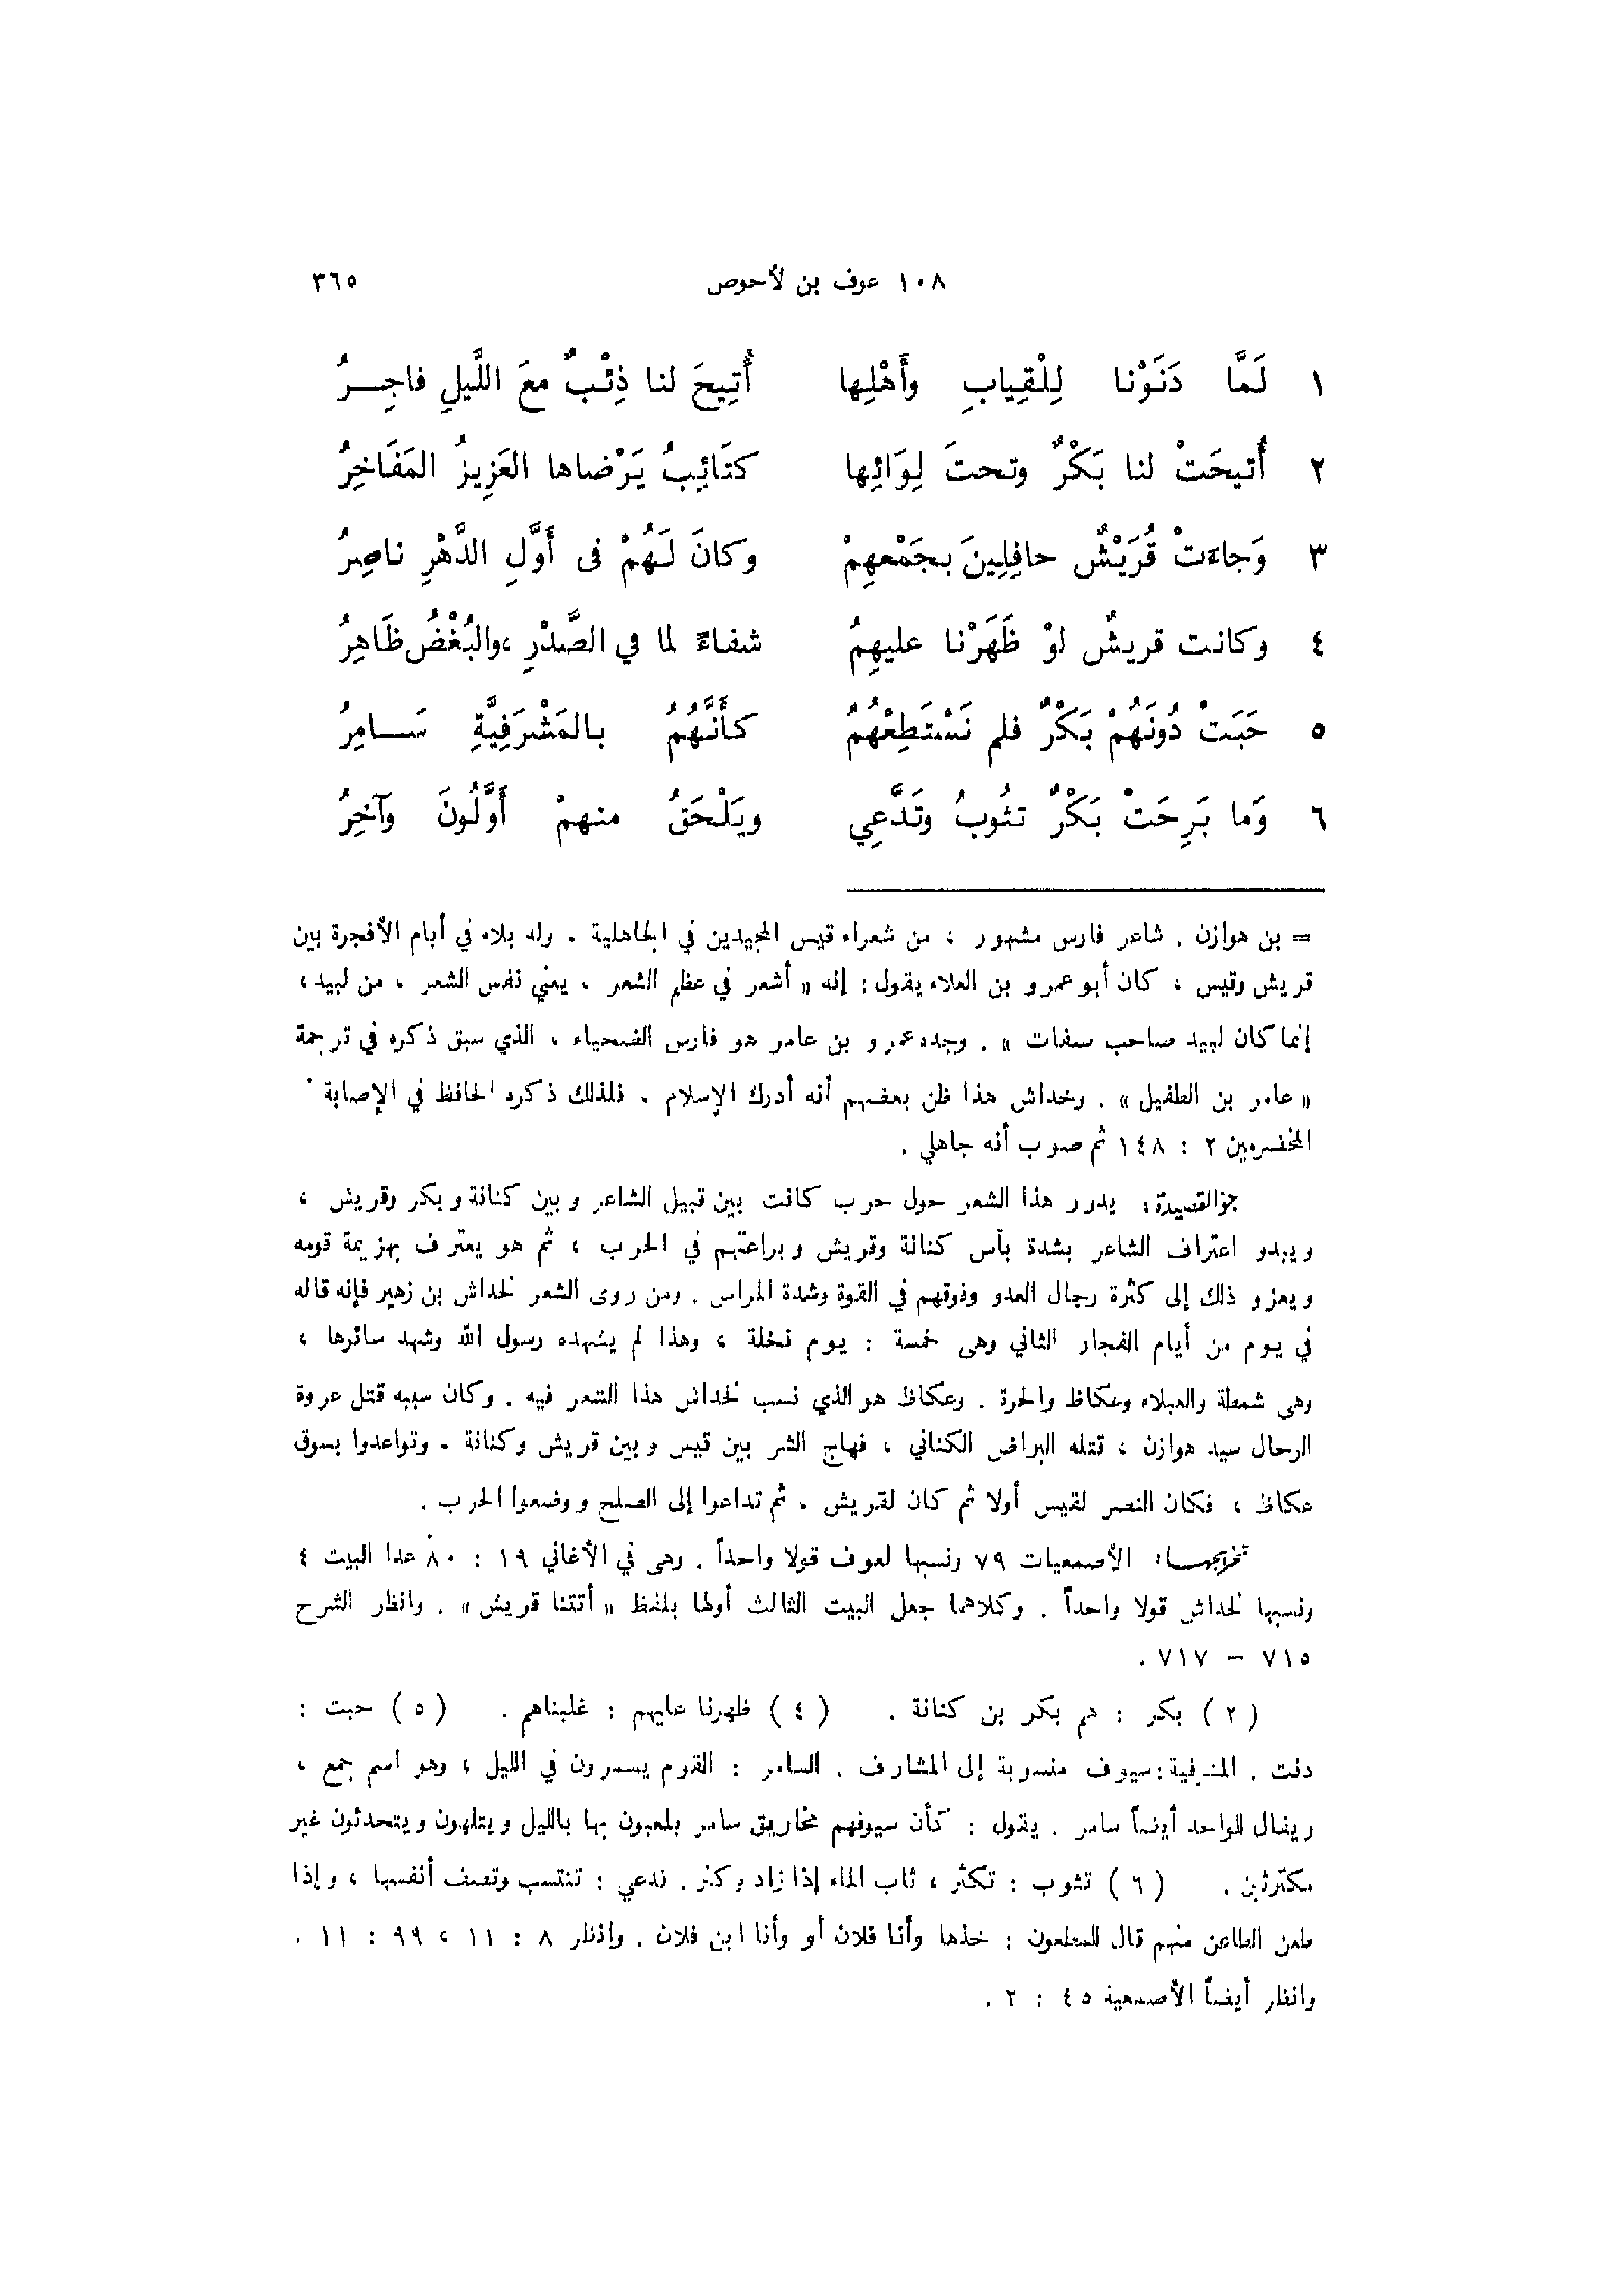 ١٠٨ عوف بن لأحوص ٣٦٥
١ لَمَّا دَنَوْنا لِلْقِبابِ وأَهْلِها أُتِيحَ لنا ذِئْبٌ معَ اللَّيلِ فاجِرُ
٢ أُتيحَتْ لنا بَكْرٌ وتحتَ لِوَائِها كتَائِبُ يَرْضاها العَزِيزُ المَفَاخِرُ
٣ وَجاءَتْ قُرَيْشٌ حافِلِينَ بجَمْعهِمْ وكانَ لَهُمْ فى أَوَّلِ الدَّهْرِ ناصِرُ
٤ وكانت قريشٌ لوْ ظَهَرْنا عليهِمُ شفاءً لما في الصَّدْرِ ،والبُغْضُ ظَاهِرُ
٥ حَبَتْ دُونَهُمْ بَكْرٌ فلم نَسْتَطِعْهُمُ كأَنَّهُمُ بالمَشْرَفِيَّةِ سَامِرُ
٦ وَما بَرِحَتْ بَكْرٌ تثُوبُ وتَدَّعِي ويَلْحَقُ منهمْ أَوَّلُونَ وآخِرُ
= بن هوازن . شاعر فارس مشهور ، من شعراء قيس المجيدين في الجاهلية . وله بلاء في أيام الأفجرة بين
قريش وقيس ، كان أبو عمرو بن العلاء يقول : إنه « أشعر في عظم الشعر ، يعني نفس الشعر ، من لبيد ،
إنما كان لبيد صاحب صفات » . وجده عمرو بن عامر هو فارس الضحياء ، الذي سبق ذكره في ترجمة
« عامر بن الطفيل » . وخداش هذا ظن بعضهم أنه أدرك الإسلام . فلذلك ذكره الحافظ في الإصابة
المخضرمين ٢ : ١٤٨ ثم صوب أنه جاهلي .
جوالقصيدة : يدور هذا الشعر حول حرب كانت بين قبيل الشاعر وبين كنانة وبكر وقريش ،
ويبدو اعتراف الشاعر بشدة بأس كنانة وقريش وبراعتهم في الحرب ، ثم هو يعترف بهزيمة قومه
ويعزو ذلك إلى كثرة رجال العدو وفوقهم في القوة وشدة المراس . ومن روى الشعر لخداش بن زهير فإنه قاله
في يوم من أيام الفجار الثاني وهى خمسة : يوم نخلة ، وهذا لم يشهده رسول الله وشهد سائرها ،
وهى شمطة والعبلاء وعكاظ والحرة . وعكاظ هو الذي نسب لخداش هذا الشعر فيه . وكان سببه قتل عروة
الرحال سيد هوازن ، قتله البراض الكناني ، فهاج الشر بين قيس وبين قريش وكنانة . وتواعدوا بسوق
عكاظ ، فكان النصر لقيس أولا ثم كان لقريش ، ثم تداعوا إلى الصلح ووضعوا الحرب .
تخريجها : الأصمعيات ٧٩ ونسبها لعوف قولا واحداً . وهى في الأغاني ١٩ : ٨٠ عدا البيت ٤
ونسبها لخداش قولا واحداً . وكلاهما جعل البيت الثالث أولها بلفظ « أتتنا قريش » . وانظر الشرح
٧١٥ – ٧١٧ .
( ٢ ) بكر : هم بكر بن كنانة . ( ٤ ) ظهرنا عليهم : غلبناهم . ( ٥ ) حبت :
دنت . المشرفية : سيوف منسوبة إلى المشارف . السامر : القوم يسمرون في الليل ، وهو اسم جمع ،
ويقال للواحد أيضاً سامر . يقول : كأن سيوفهم مخاريق سامر يلعبون بها بالليل ويتلهون ويتحدثون غير
مكترثين . ( ٦ ) تثوب : تكثر ، ثاب الماء إذا زاد وكثر . تدعي : تنتسب وتصف أنفسها ، وإذا
طعن الطاعن منهم قال للمطعون : خذها وأنا فلان أو وأنا ابن فلان . وانظر ٨ : ١١ ، ٩٩ : ١١ .
وانظر أيضاً الأصمعية ٤٥ : ٢ .